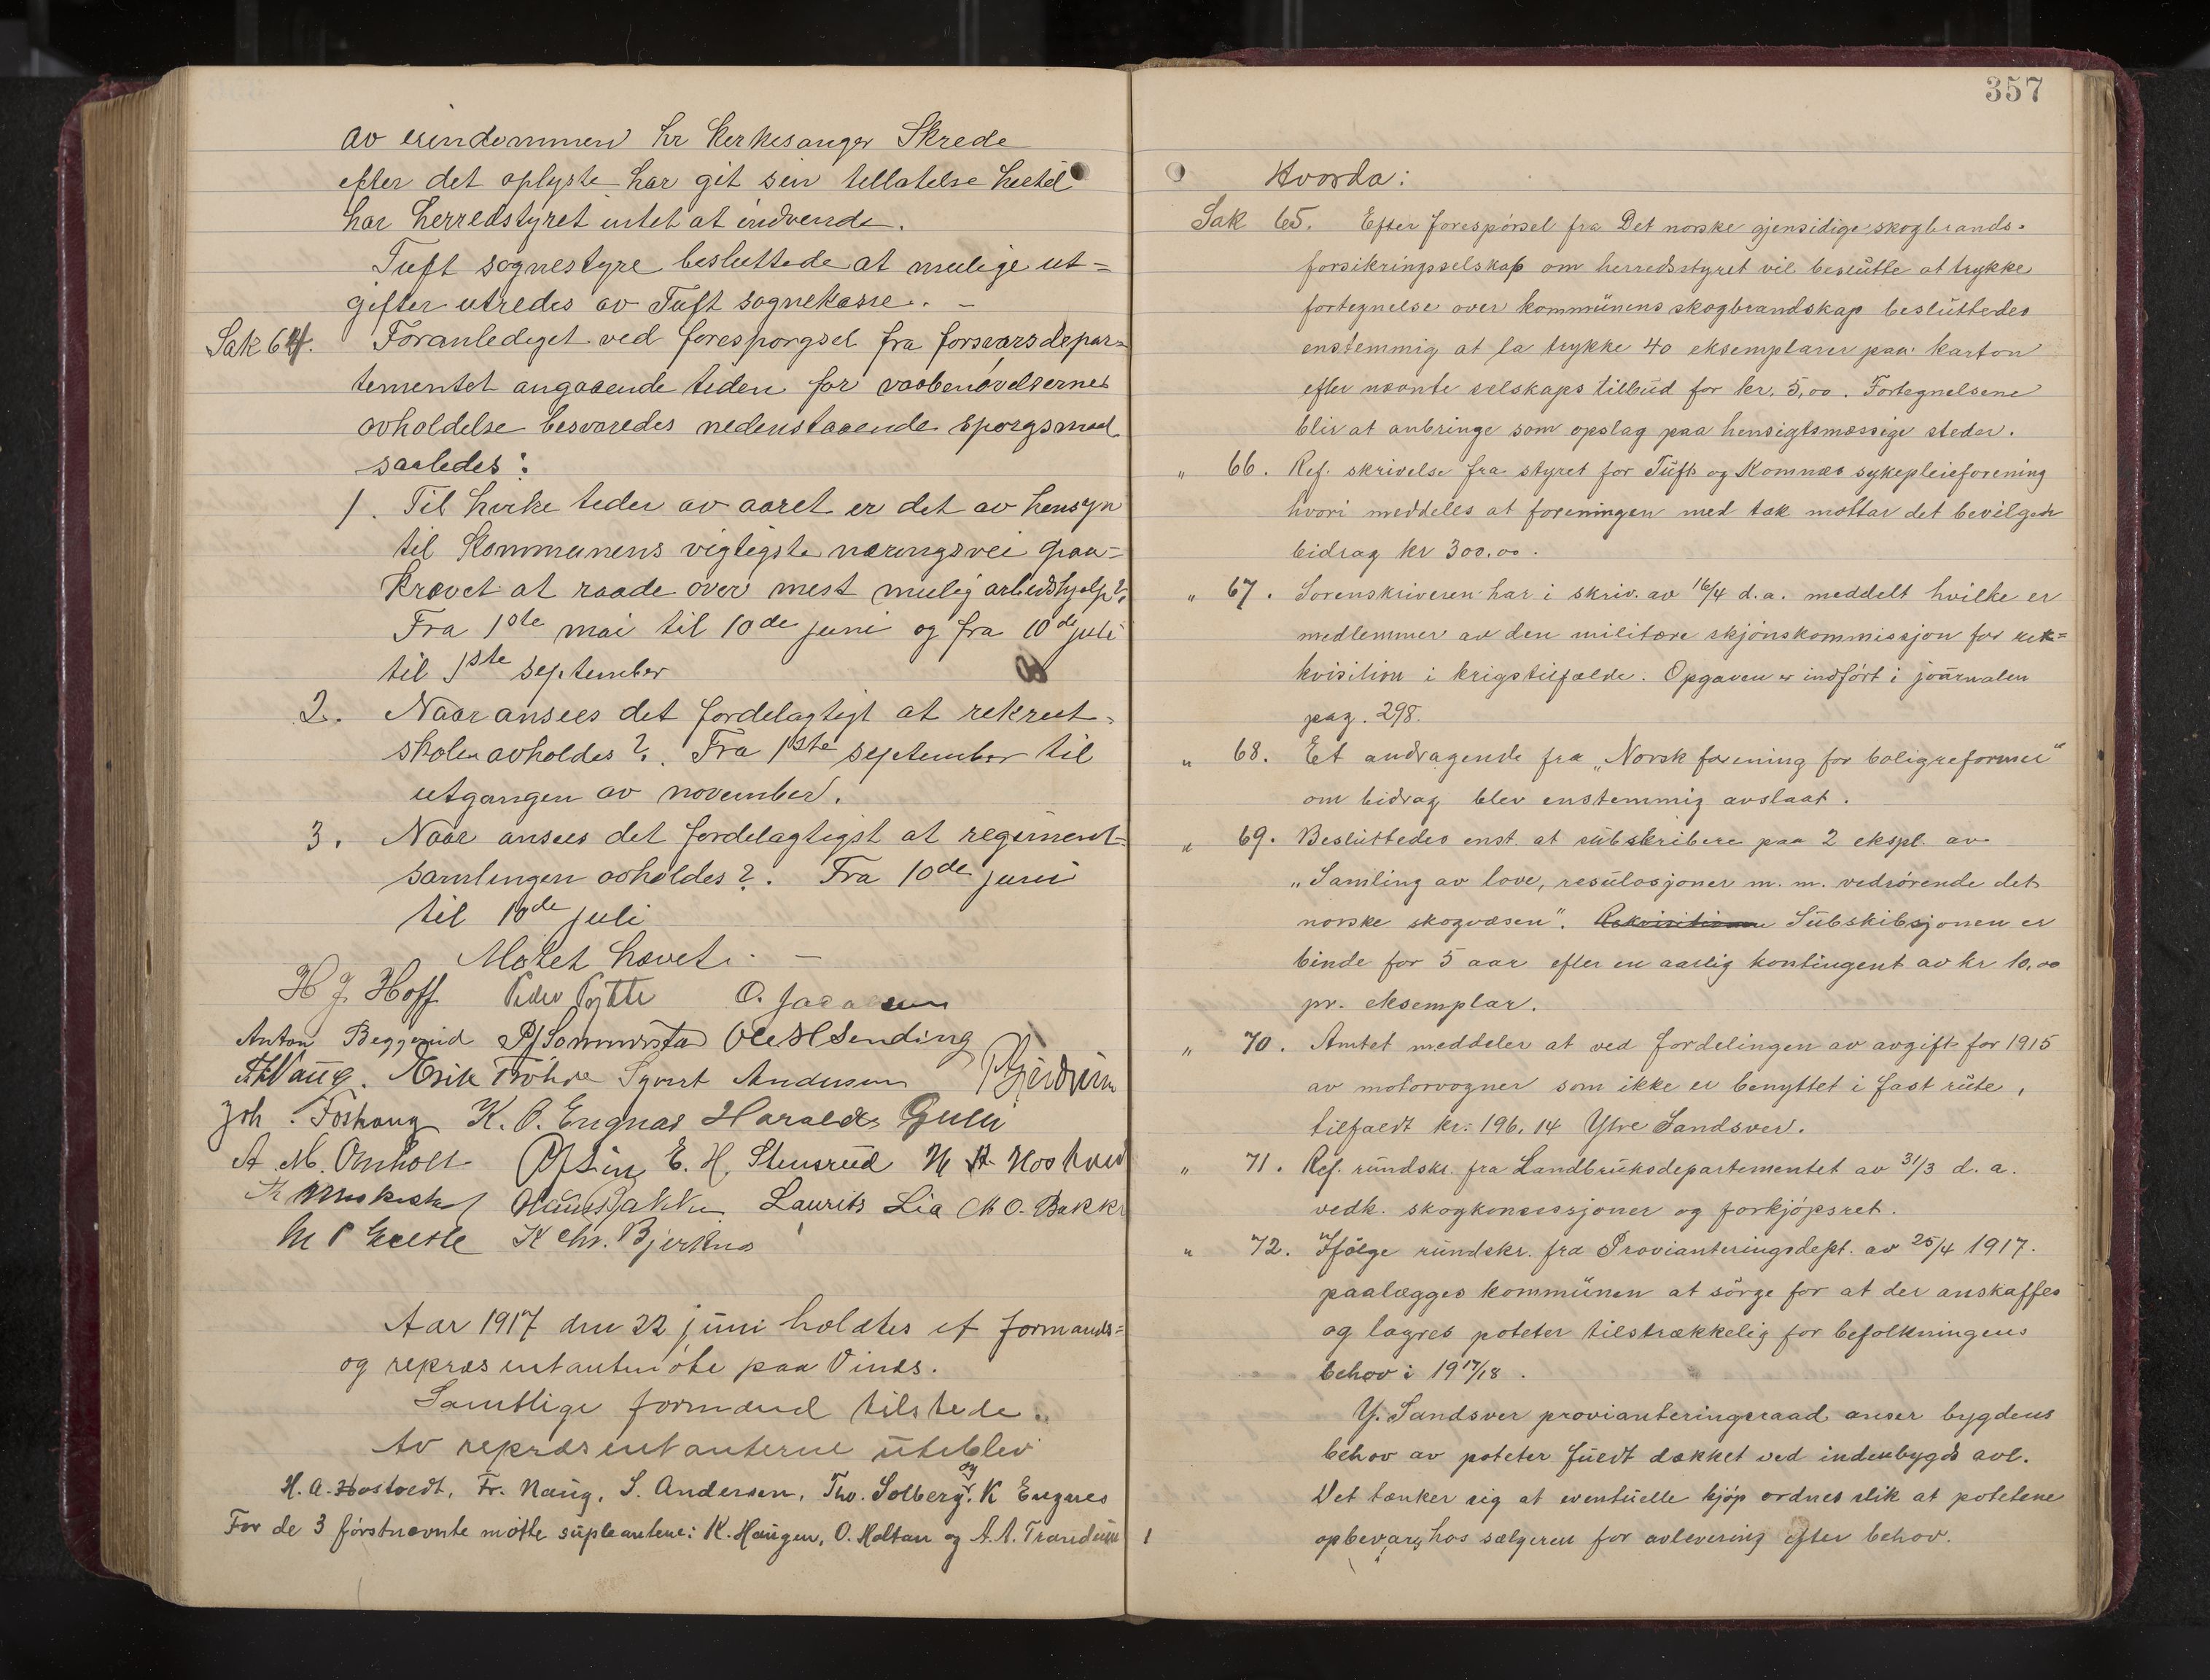 av eiendommen hr kirkesanger Skrede
efter det oplyste har git sin tillatelse hertil
har herredstyret intet at indvende.
Tuft sognestyre besluttede at mulige ut-
gifter utredes av Tuft sognekasse. —
Sak 64. Foranlediget ved forespørgsel fra forsvarsdepar-
tementet angaaende tiden for vaabenøvelsernes
avholdelse besvaredes nedenstaaende spørgsmaal
saaledes:
1. Til hvilke tider av aaret er det av hensyn
til Kommunens vigtigste næringsvei paa-
krævet at raade over mest mulig arbeidshjelp?
Fra 1ste mai til 10de juni og fra 10de juli
til 1ste september
2. Naar ansees det fordelagtigt at rekrut-
skolen avholdes?. Fra 1ste september til
utgangen av november.
3. Naar ansees det fordelagtigst at regiment-
samlingen avholdes?. Fra 10de juni
til 10de juli
Møtet hævet. —
H J. Hoff Peder O. Jacobsen
Anton Beggerud Ole H Sending
Erik Syvert Andersen
Joh. Foshaug K. O. Engnæs Harald Gulli
A. M. Omholt E. H. Stensrud
Hans Bakke Laurits Lia M O. Bakke
K Chr. Bjerknes
Aar 1917 den 22 juni holdtes et formands-
og repræsentantmøte paa Vinds.
Samtlige formænd tilstede.
Av repræsentanterne uteblev
H. A. Hostvedt, Fr. Naug, S. Andersen, Tho. Solberg. og K Engnes
For de 3 förstnævnte møtte supleantene: K. Haugen, O. Holtan og A. A. Trandum
357
Hvorda:
Sak 65. Efter forespörsel fra Det norske gjensidige skogbrands-
forsikringsselskap om herredsstyret vil beslutte at trykke
fortegnelse over kommunens skogbrandskap besluttedes
enstemmig at la trykke 40 eksemplarer paa karton
efter nævnte selskaps tilbud for kr. 5,00. Fortegnelsene
blir at anbringe som opslag paa hensigtsmæssige steder.
" 66. Ref. skrivelse fra styret for Tuft og Komnæs sykepleieforening
hvori meddeles at foreningen med tak mottar det bevilgede
bidrag kr 300,00.
" 67. Sorenskriveren har i skriv. av 16/4 d.a. meddelt hvilke er
medlemmer av den militære skjönskommissjon for rek-
kvisition i krigstilfælde. Opgaven er indført i journalen
pag. 298.
" 68. Et andragende fra „Norsk forening for boligreformer"
om bidrag blev enstemmig avslaat.
" 69. Besluttedes enst. at subskribere paa 2 ekspl. av
„Samling av love, resulosjoner m. m. vedrörende det
norske skogvæsen". Rekvisitionen Subskibsjonen er
binde for 5 aar efter en aarlig kontingent av kr 10,00
pr. eksemplar.
" 70. Amtet meddeler at ved fordelingen av avgift for 1915
av motorvogner som ikke er benyttet i fast rute,
tilfaldt kr: 196.14 Ytre Sandsver.
" 71. Ref. rundskr. fra Landbruksdepartementet av 31/3 d. a.
vedk. skogkonsessjoner og forkjøpsret.
" 72. Ifölge rundskr. fra Provianteringsdept. av 25/4 1917.
paalægges kommunen at sörge for at der anskaffes
og lagres poteter tilstrækkelig for befolkningens
behov i 1917/18.
Y. Sandsver provianteringsraad anser bygdens
behov av poteter fuldt dækket ved indenbygds avl.
Det tænker sig at eventuelle kjøp ordnes slik at potetene
opbevares hos sælgeren for avlevering efter behov.